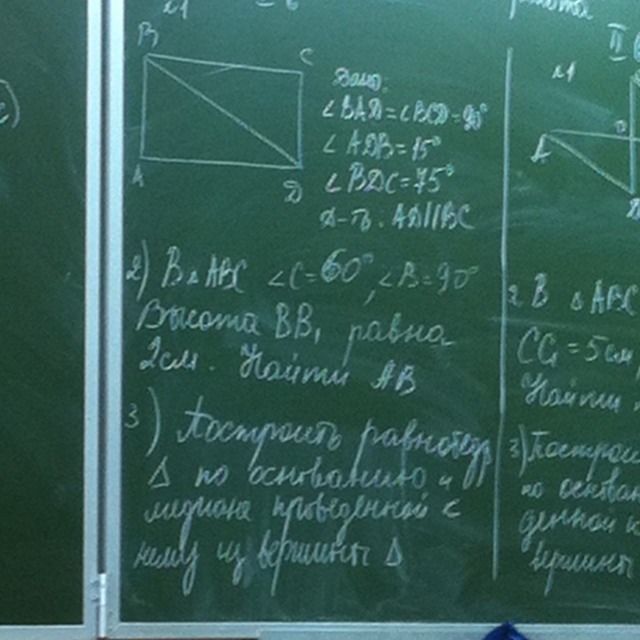 B
C
A
D
Дано:
∠BAD=∠BCD=90°
∠ADB=15°
∠BDC=75°
Д-ть: AD||BC
2) В △ABC ∠C=60°, ∠B=90°
Высота BB₁ равна
2см. Найти AB
3) Построить равнобедр
△ по основанию и
медиане проведенной к
нему из вершины △
II
A
2 В △ABC
CC₁=5см
Найти
3) Построи
по основа
денной к
вершины